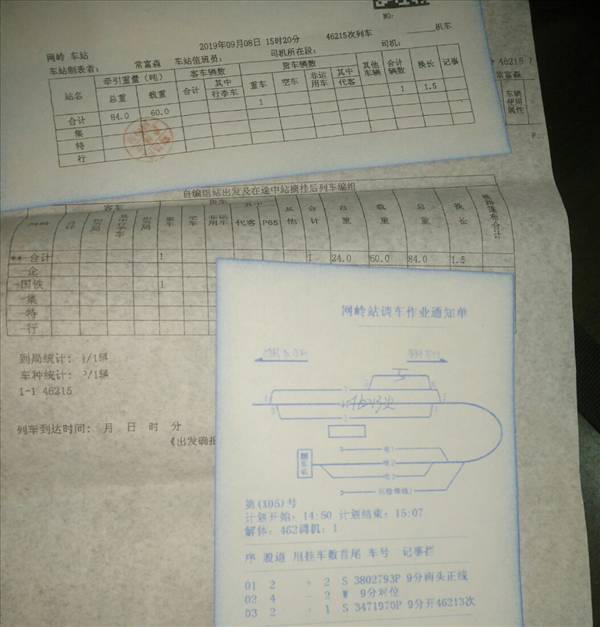 NO:
2019年09月08日 15时20分 46215次列车 机车
网岭 车站
车站制表者: 常富森 车站值班员: 司机所在段: 司机:
站名 牵引重量(吨) 客车辆数 货车辆数 其他车辆 合计辆数 换长 记事
总重 载重 合计 其中行李车 重车 空车 非运用车 其中代客
合计 84.0 60.0 1 1 1.5
集
特
行
46215
常富森
车辆使用属性
自编组站出发及在途中站摘挂后列车编组
客车 货车 其中
重车 空车 非运用车 代客 P65 其他 合计 自重 载重 总重 换长 铁路篷布合计
** 合计 1 1 24.0 60.0 84.0 1.5
企
国铁 1
集
特
行
到局统计: 1/1辆
车种统计: P/1辆
1-1 46215
列车到达时间: 月 日 时 分
《出发确报
网岭站调车作业通知单
第(X05)号
计划开始: 14:50 计划结束: 15:07
解体: 462调机: 1
序 股道 甩挂车数首尾 车号 记事栏
01 2 + 2 S 3802793P 9分南头正线
02 4 - 2 W 9分对位
03 2 + 1 S 3471970P 9分开46213次